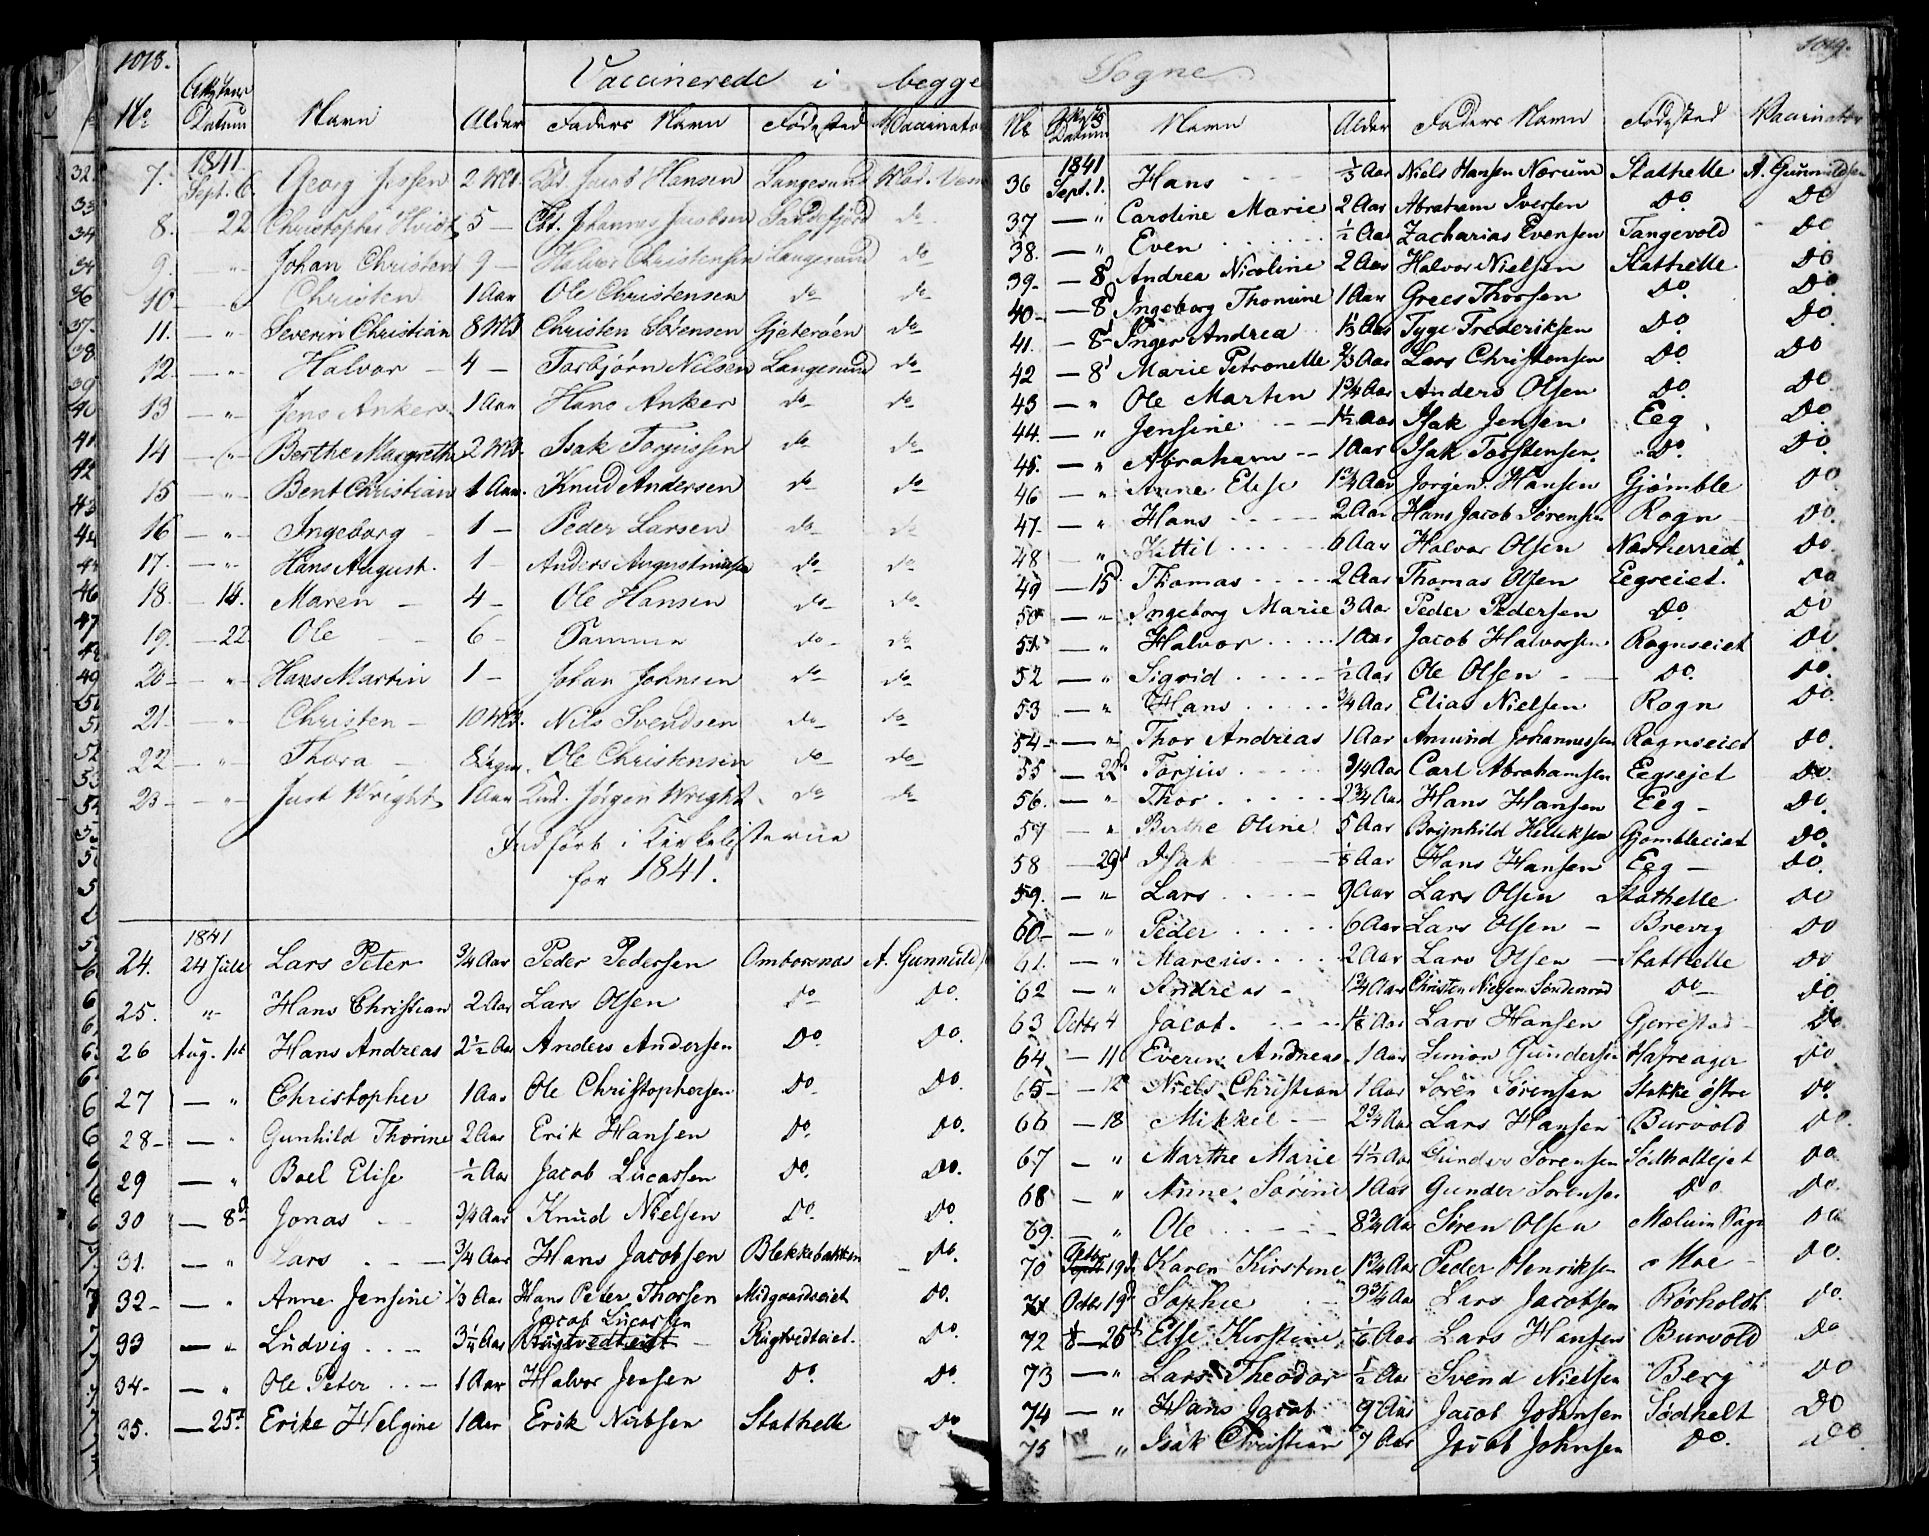 1018.
Vaccinerede i begge
No Datum Navn Alder Faders Navn Fødested Vaccinator
1841
7. Sept. 6. Georg 2 Md. Jacob Hansen Langesund
8. — 22 Christopher Hvidt 5 — Johannes Jacobsen Sandefjord do
9. — " Johan Christen 9 — Halvor Christensen Langesund do
10 — " Christen 1 Aar Ole Christensen do do
11. — " Severin Christian 8 Md Christen Sörensen Gjeterøen do
12. — " Halvor — 4 — Torbjørn Nilsen Langesund do
13 — " Jens Anker 1 Aar Hans Anker do do
14 — " Berthe Margrethe 2 Md. Isak Torjussen do do
15 — " Bent Christian 1 Aar. Knud Andersen do do
16 — " Ingeborg 1 — Peder Larsen do do
17. — " Hans August. 1 — Anders Augustinusen do do
18. — 14. Maren — 4 — Ole Hansen do do
19. — 22. Ole — 6 — Samme do do
20 — " Hans Martin 1 — Johan Johnsen do do
21. — " Christen — 10 Md. Nils Svendsen do do
22 — " Thora — Ole Christensen do do
23 — " Just Wright 1 Aar Jørgen Wright. do do
Indført i Kirkelisterne
for 1841.
1841
24. 24 Juli Lars Peter ¾ Aar Peder Pedersen Omborsnæs A. Gunnuld
25. " Hans Christian 2 Aar Lars Olsen Do Do.
26 Aug. 1st Hans Andreas 2½ Aar Anders Andersen Do Do.
27 — " Christopher 1 Aar Ole Christophersen Do Do.
28 — " Gunhild Thorine 2 Aar Erik Hansen Do. Do.
29 — " Boel Elise ½ Aar Jacob Lucassen Do. Do.
30 — 8d Jonas ¾ Aar Knud Nielsen Do. Do.
31. — " Lars — ¾ Aar Hans Jacobsen Blekkebakken Do.
32 — " Anne Jensine ⅓ Aar Hans Peter Thorsen Midgaardseiet Do.
Jacob Lucassen
33 — " Ludvig 3¼ Aar Rugtvedteiet Rugtvedteiet. Do
34 — " Ole Peter 1 Aar Halvor Jensen Do. Do.
35. — 25d Erike Helgine 1 Aar Erik Nirbsen Stathelle Do
1019.
Sogne.
No Datum Navn Alder Faders Navn Fødested Vaccinator
1841
36 Sept. 1. Hans ⅓ Aar Niels Hansen Nærum Stathelle A. Gunnuldsen
37 — " Caroline Marie 2 Aar Abraham Iversen Do Do
38. — " Even ½ Aar Zacharias Evensen Tangevold Do
39 — 8 Andrea Nicoline 2 Aar Halvor Nielsen Stathelle Do
40 — 8 Ingeborg Thomine 1 Aar Grees Thorsen Do. Do.
41. — 8 Inger Andrea 1⅓ Aar Tyge Frederiksen Do Do.
42 — 8 Marie Petronelle ⅔ Aar Lars Christensen Do Do
43 — " Ole Martin 1¾ Aar Anders Olsen Do. Do
44. — " Jensine 1½ Aar Isak Jensen Eeg Do.
45. — " Abraham 1 Aar Isak Torstensen. Do. Do.
46 — " Anne Elise 1¾ Aar Jørgen Hansen Gjømble Do
47 — " Hans 2 Aar Hans Jacob Sørensen Rogn Do.
48 " Kittil 6 Aar Halvor Olsen Nørherred Do.
49 — 15d Thomas 2 Aar Thomas Olsen Eegseiet. Do
50 — " Ingeborg Marie 3 Aar Peder Pedersen Do. Do
51 — " Halvor 1 Aar Jacob Halvorsen Rognseiet Do
52 — " Sigrid ½ Aar Ole Olsen Do. Do.
53 — " Hans ¾ Aar Elias Nielsen Rogn Do.
54 — " Thor Andreas 1 Aar Amund Johannessen Rognseiet Do.
55 — 22d Torjus ¾ Aar Carl Abrahamsen Eegsejet Do.
56. — " Thor 2¾ Aar Hans Hansen Eeg — Do.
57 — " Berthe Oline 5 Aar Brynhild Gjømbleeiet Do.
58 — 29d Isak Aar Hans Hansen Eeg — Do.
59. — " Lars 9 Aar Lars Olsen Stathelle Do
60 — " Peder 6 Aar Lars Olsen — Brevig Do
61. — " Marcus 2 Aar Lars Olsen — Stathelle Do
62 — " Andreas 1¾ Aar Christen Nielsen Søndersrød Do Do.
63 Octbr 4 Jacob. Aar Lars Hansen Gjerrestad Do
64 — 11 Everine Andrea 1 Aar Simon Gundersen Hafreager Do
65 — 12 Niels Christian 1 Aar Sören Sörensen Stokke østre Do.
66 — 18 Mikkel — 2¾ Aar Lars Hansen Burvold Do.
67 — " Marthe Marie 4½ Aar Gunder Sörensen Sødholtejet Do
68 — " Anne Sörine 1 Aar Gunder Sörensen Do Do.
69. — " Ole 8¾ Aar Sören Olsen Do
70 Octbr 19d Karen Kirstine 1¾ Aar Peder Henriksen Moe Do.
71 Octbr 19d Sophie 3¾ Aar Lars Jacobsen Rörholdt Do.
72 — 26d Else Kirstine Aar Lars Hansen Burvold Do
73 — " Lars Theodor ½ Aar Svend Nielsen Berg Do
74 — " Hans Jacob 9 Aar Jacob Johnsen Sødholt Do
75 — " Isak Christian 7 Aar Jacob Johnsen Do. Do.